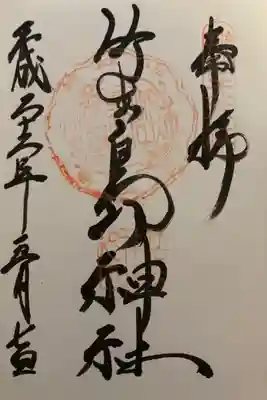 奉拝
竹生島神社
平成二十六年五月日